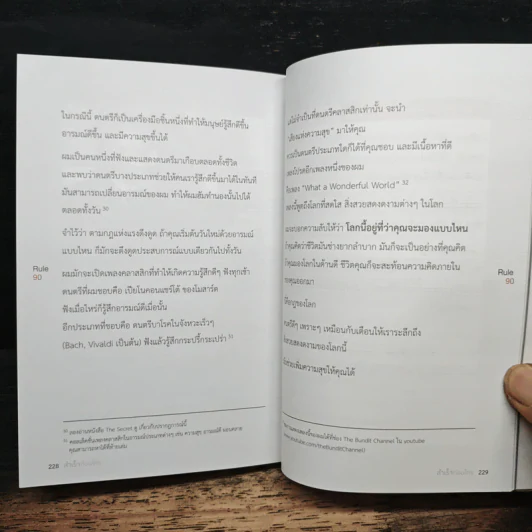 ในกรณีนี้ ดนตรีก็เป็นเครื่องมือชิ้นหนึ่งที่ทำให้มนุษย์รู้สึกดีขึ้น
อารมณ์ดีขึ้น และมีความสุขขึ้นได้
ผมเป็นคนหนึ่งที่ฟังและแสดงดนตรีมาเกือบตลอดทั้งชีวิต
และพบว่าดนตรีบางประเภทช่วยให้คนเรารู้สึกดีขึ้นมาได้ในทันที
มันสามารถเปลี่ยนอารมณ์ของผม ทำให้ผมฮัมทำนองนั้นไปได้
ตลอดทั้งวัน 30
จำไว้ว่า ตามกฎแห่งแรงดึงดูด ถ้าคุณเริ่มต้นวันใหม่ด้วยอารมณ์
แบบไหน ก็มักจะดึงดูดประสบการณ์แบบเดียวกันไปทั้งวัน
Rule
90
ผมมักจะเปิดเพลงคลาสสิกที่ทำให้เกิดความรู้สึกดีๆ ฟังทุกเช้า
ดนตรีที่ผมชอบคือ เปียโนคอนแชร์โต้ ของโมสาร์ต
ฟังเมื่อไหร่ก็รู้สึกอารมณ์ดีเมื่อนั้น
อีกประเภทที่ชอบคือ ดนตรีบาโรคในจังหวะเร็วๆ
(Bach, Vivaldi เป็นต้น) ฟังแล้วรู้สึกกระปรี้กระเปร่า 31
30 ลองอ่านหนังสือ The Secret ดู เกี่ยวกับปรากฏการณ์นี้
31
228
จำเป็นที่ดนตรีคลาสสิกเท่านั้น จะนำ
แห่งความสุข" มาให้คุณ
เป็นดนตรีประเภทใดก็ได้ที่คุณชอบ และมีเนื้อหาที่ดี
อีกเพลงหนึ่งของผม
"What a Wonderful World" 32
พูดถึงโลกที่สดใส สิ่งสวยสดงดงามต่างๆ ในโลก
บอกความลับให้ว่า โลกนี้อยู่ที่ว่าคุณจะมองแบบไหน
คุณคิดว่าชีวิตมันช่างยากลำบาก มันก็จะเป็นอย่างที่คุณคิด
คุณมองโลกในด้านดี ชีวิตคุณก็จะสะท้อนความคิดภายใน
คุณออกมา
Rule
90
ของโลก
ดีๆ เพราะๆ เหมือนกับเตือนให้เราระลึกถึง
สวยสดงดงามของโลกนี้
ช่วยเพิ่มความสุขให้คุณได้
The Bundit Channel ใน youtube
229